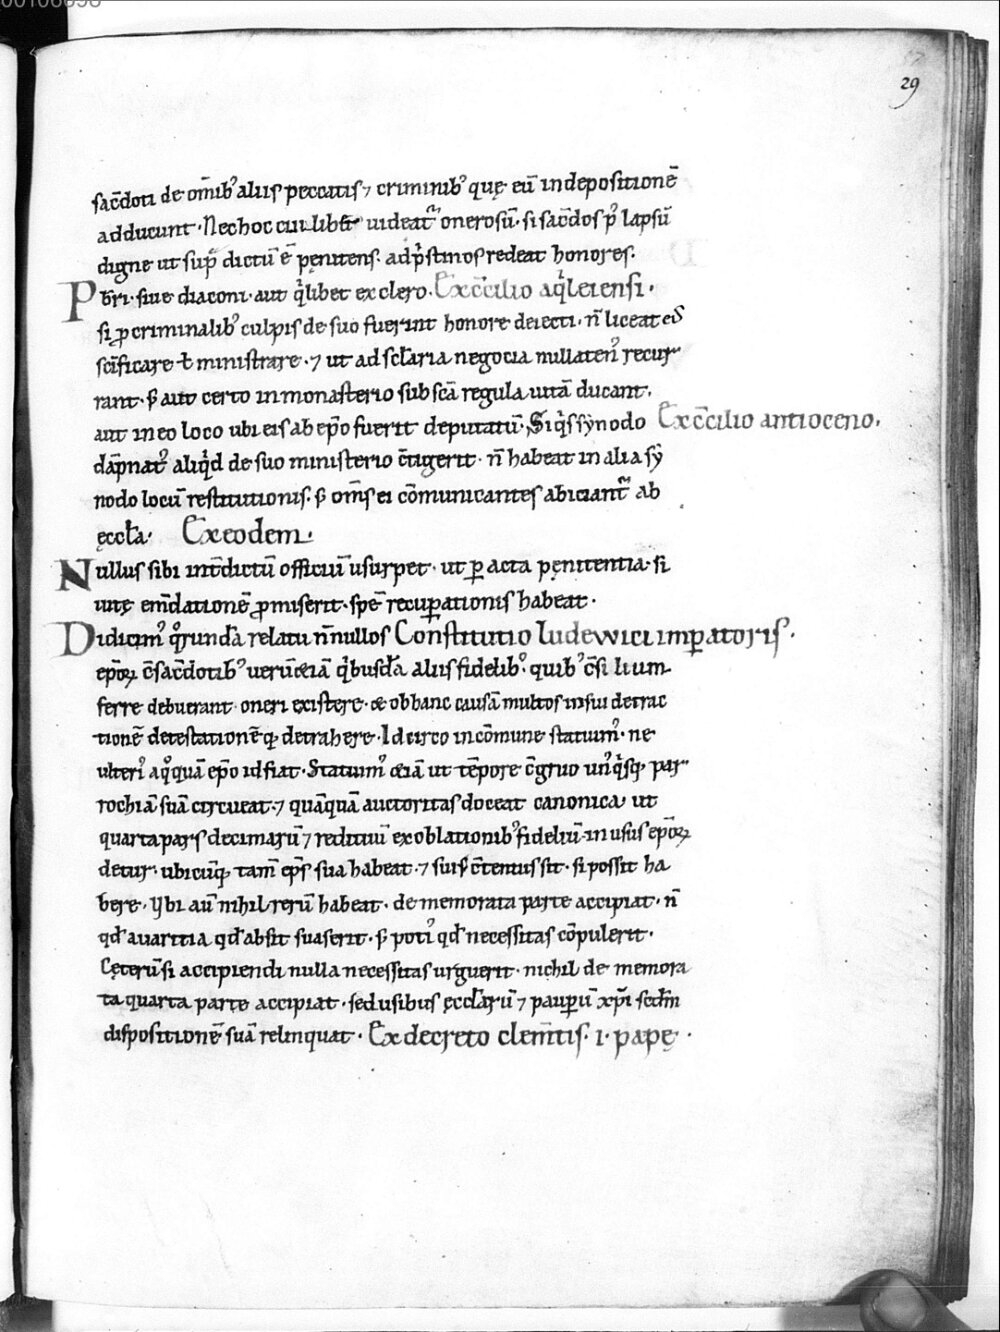 00106098
29
sac̄doti de om̄ibꝰ aliis peccatis ⁊ criminibꝰ quę eū in depositionē
adducunt · Nec hoc cuilib& uideat᷑ onerosū · si sac̄dos p̄ lapsū
digne ut sup̄ dictū ē pęnitens · ad p̄stinos redeat honores ·
Pbr̄i · siue diaconi · aut q̇libet ex clero · Ex c̄cilio aq̇leiensi ·
si ꝓ criminalibꝰ culpis de suo fuerint honore deiecti · n̄ liceat eis
sc̄ificare ł ministrare · ⁊ ut ad sc̄laria negocia nullatenꝰ recur
rant · s̄ aut certo in monasterio sub sc̄a regula uitā ducant ·
aut in eo loco ubi eis ab ep̄o fuerit deputatū · Siq̇s synodo Ex c̄cilio antioceno ·
dāpnatꝰ aliq̇d de suo ministerio c̄tigerit · n̄ habeat in alia sy
nodo locū restitutionis · s̄ om̄s ei cōmunicantes abiciant᷑ ab
ęccła · Ex eodem ·
Nullus sibi int̄dictū officiū usurpet · ut ꝑacta pęnitentia · si
uitę em̄dationē ꝓmiserit · spē recuꝑationis habeat ·
Didicimꝰ q̊rundā relatu n̄nullos Constitutio ludewici imꝑatoris ·
ep̄oꝝ c̄sac̄dotibꝰ uerū &iā q̇busdā aliis fidelibꝰ · quibꝰ c̄siliū
ferre debuerant · oneri existere · & ob hanc causā multos in sui detrac
tionē detestationēq; detrahere · Idcirco in cōmune statuimꝰ · ne
ulteriꝰ a q̊quā ep̄o id fiat · Statuimꝰ &iā ut tēpore c̄gruo unꝰq̇sq; par
rochiā suā circueat · ⁊ quāquā auctoritas doceat canonica · ut
quarta pars decimarū ⁊ redituū ex oblationibꝰ fideliū · in usus ep̄oꝝ
detur · ubicūq; tam̄ ep̄s sua habeat · ⁊ suis c̄tentus sit · si possit ha
bere · Ubi aū nihil rerū habeat · de memorata parte accipiat · n̄
qd̄ auaritia qd̄ absit suaserit · s̄ potiꝰ qd̄ necessitas cōpulerit ·
Cęterū si accipiendi nulla necessitas urguerit · nichil de memora
ta quarta parte accipiat · sed usibus ęccłarū ⁊ pauꝑū xp̄i scd̄m
dispositionē suā relinquat · Ex decreto clem̄tis · i · papę ·